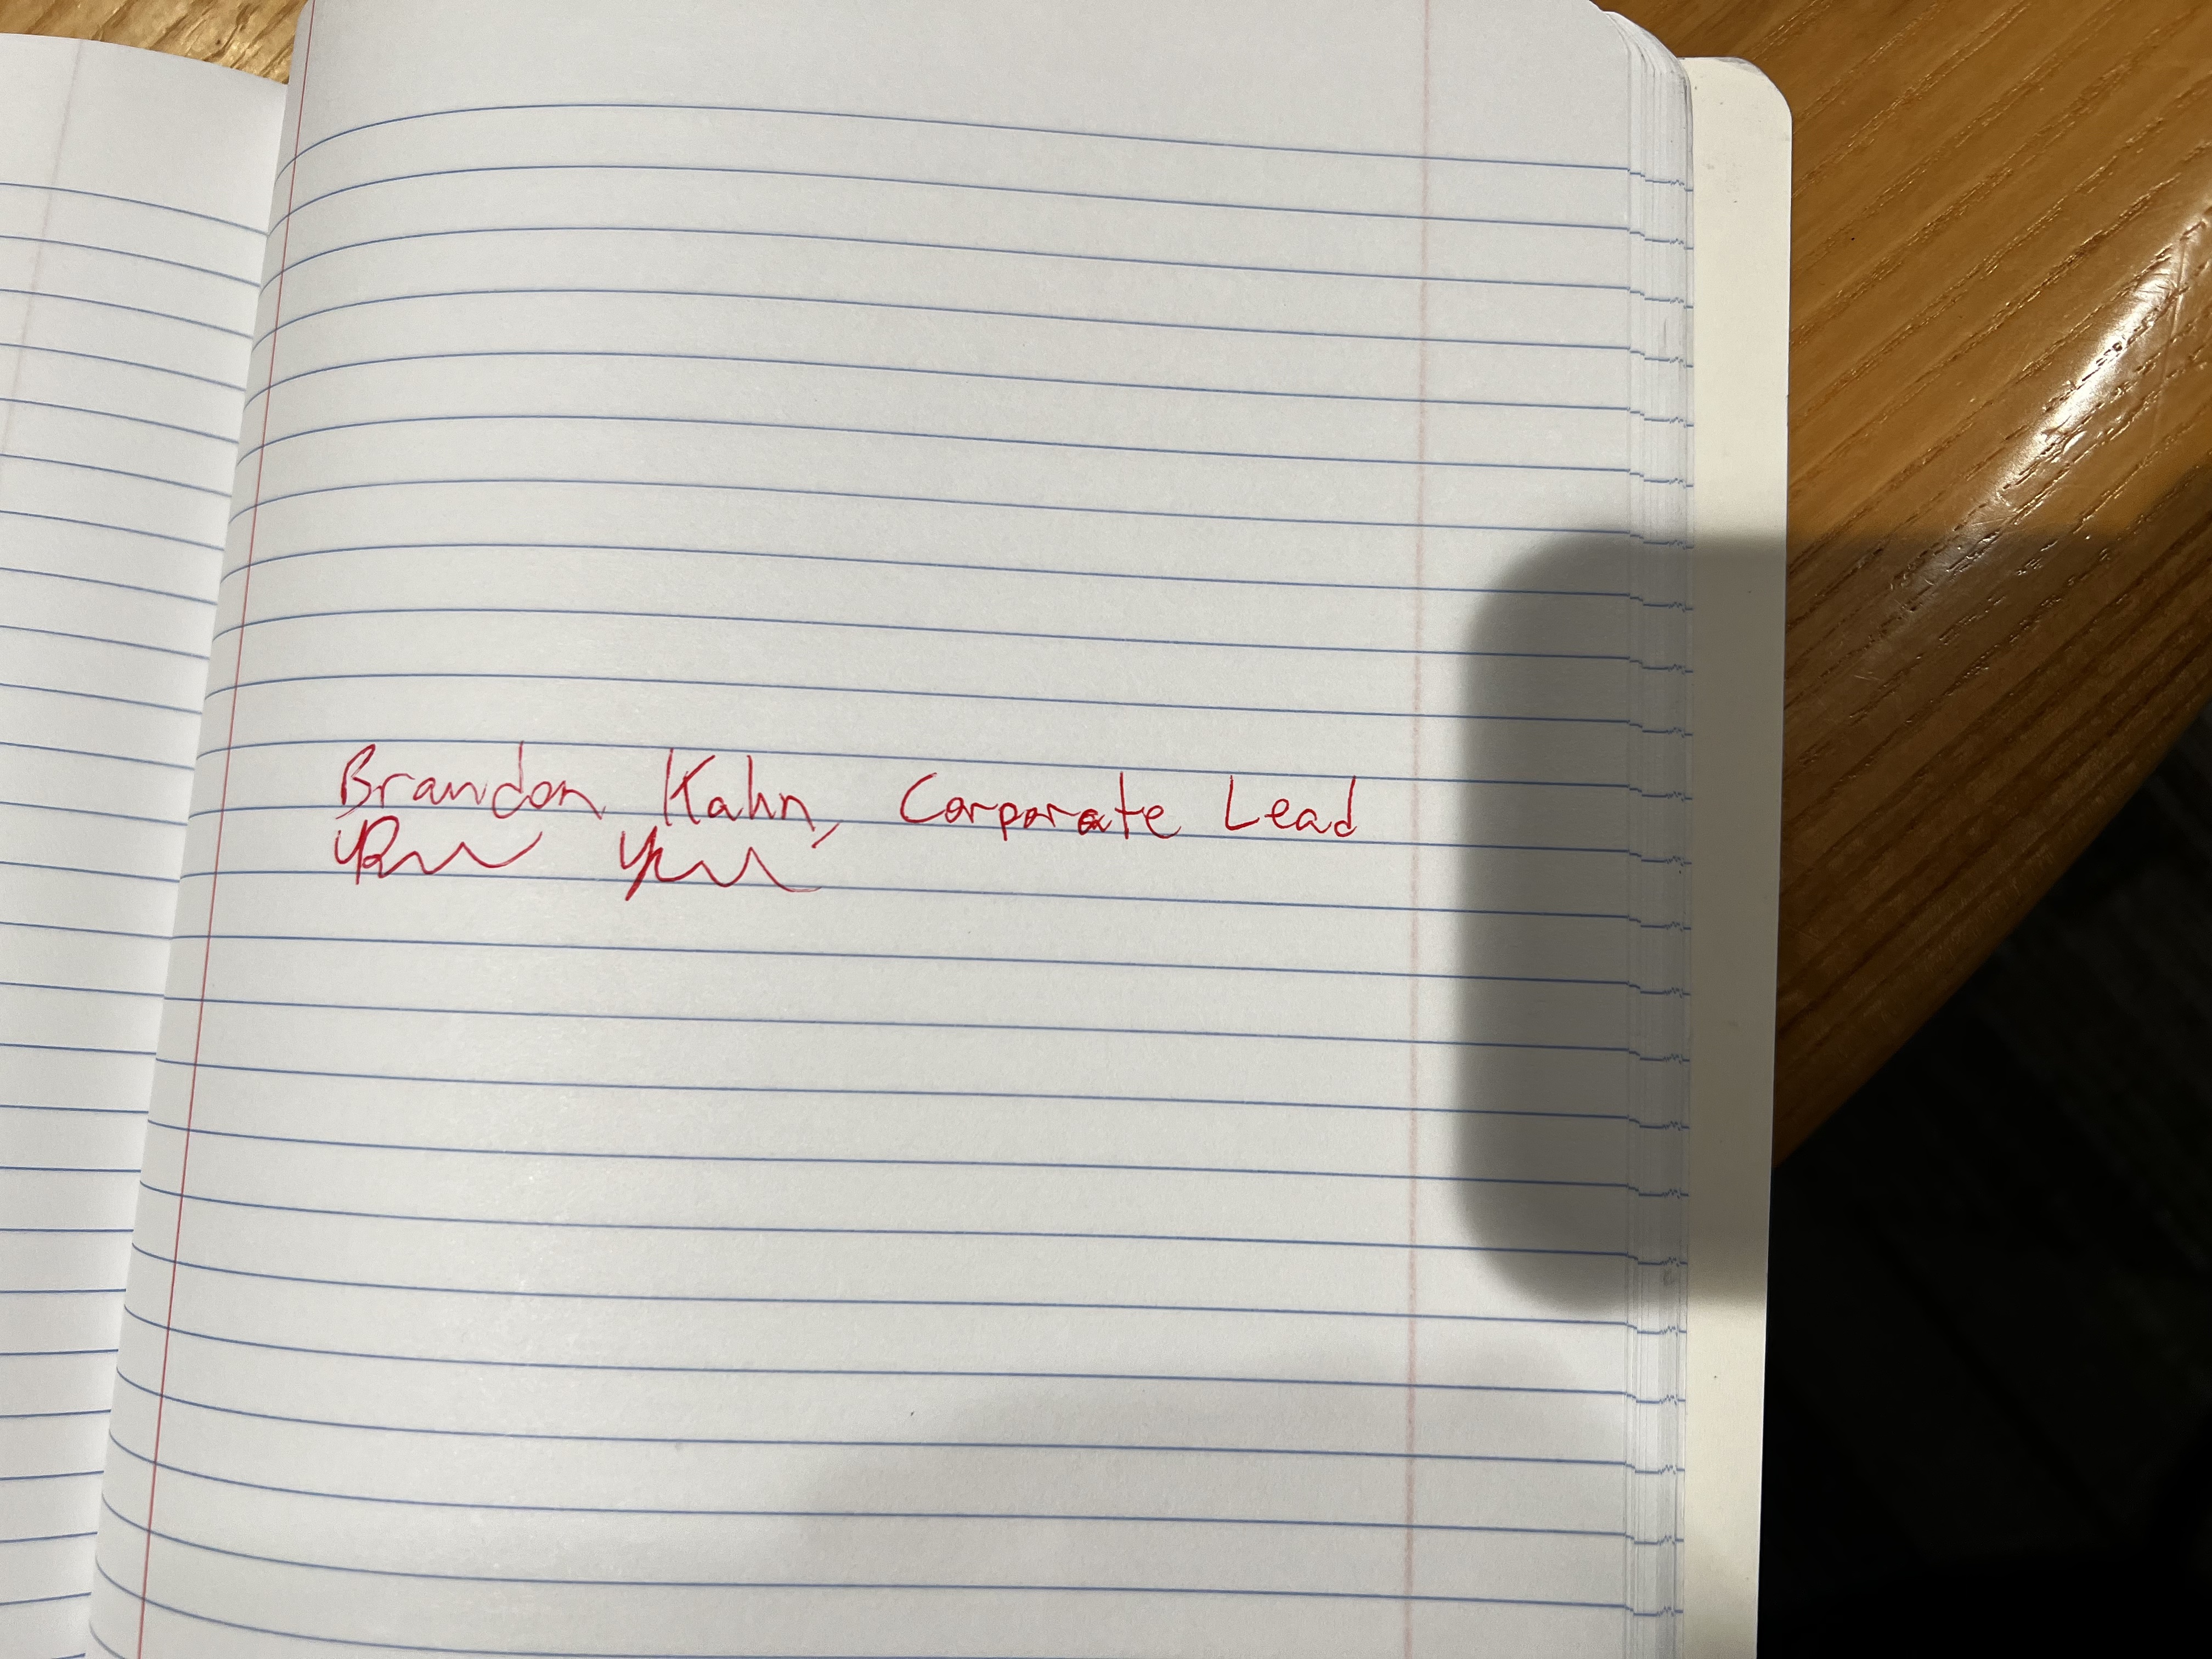 Brandon Kahn, Corporate Lead